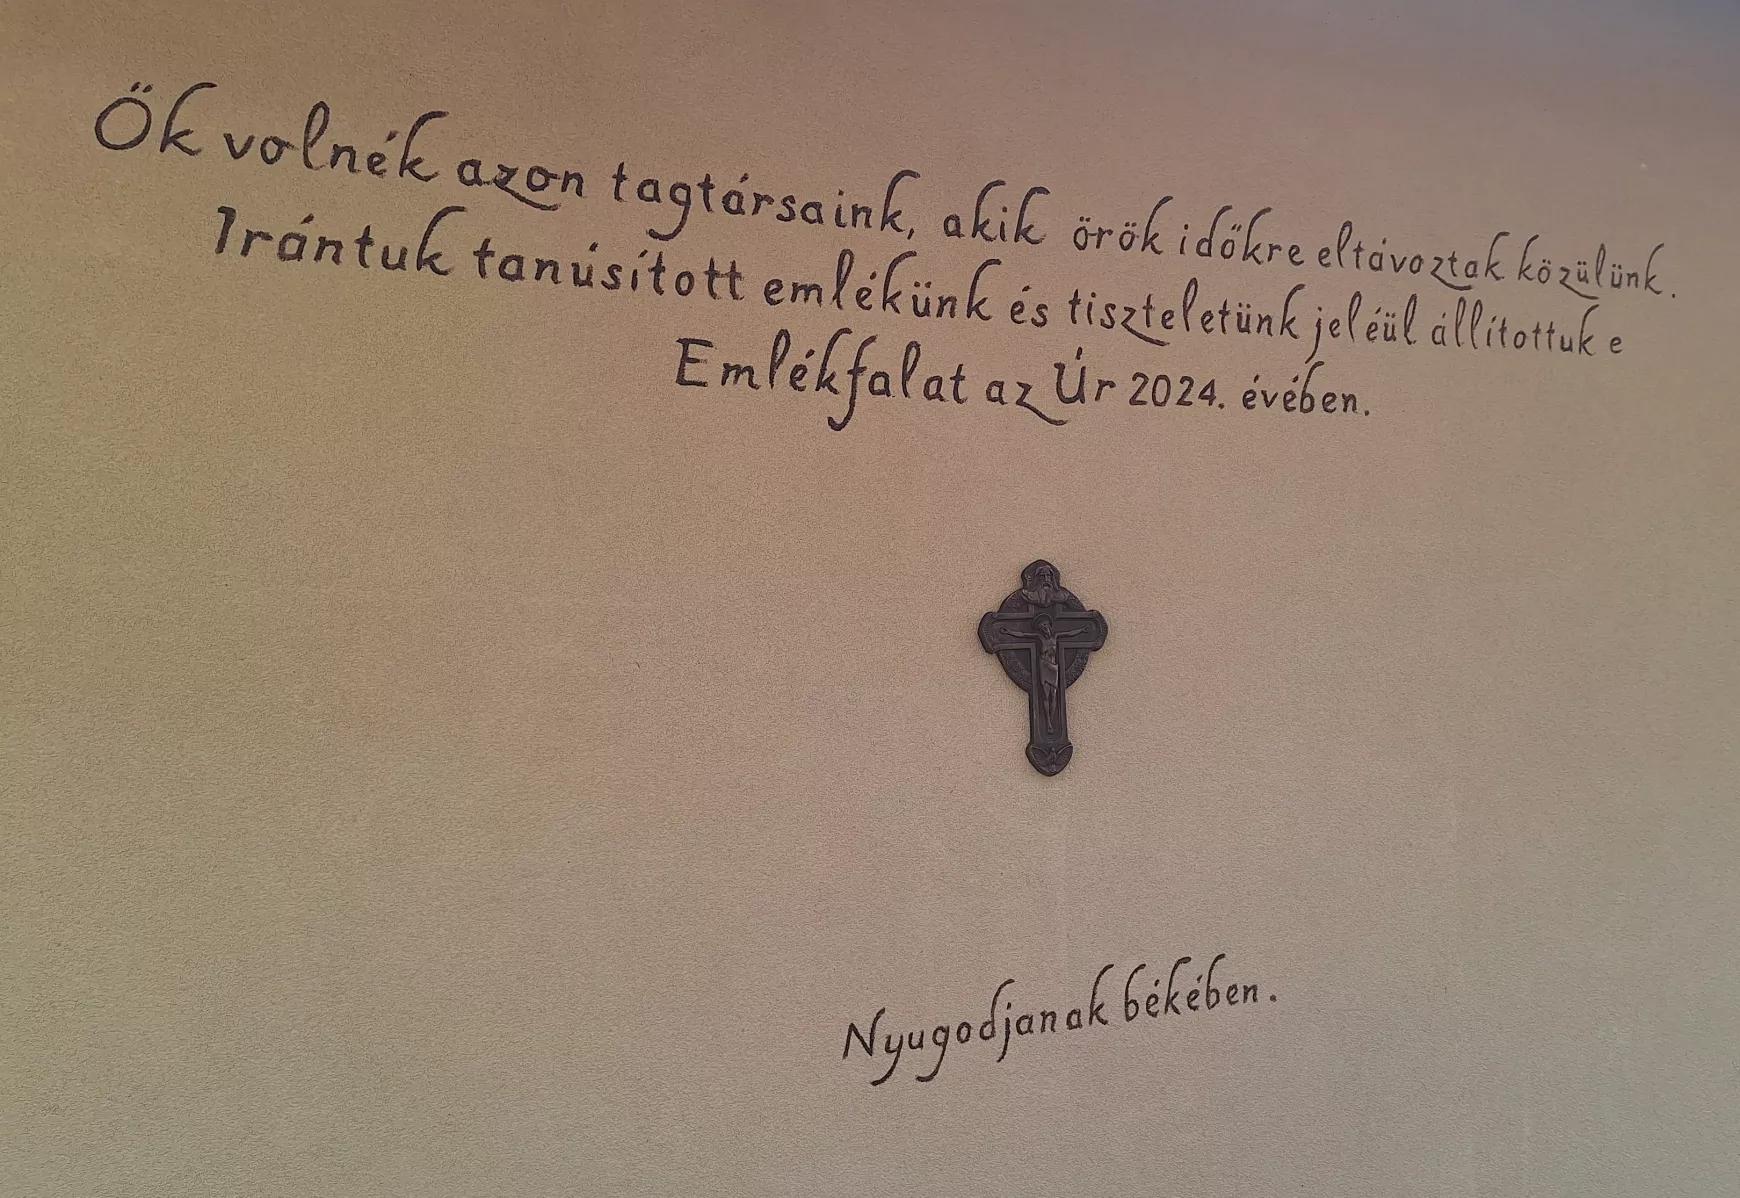 Ők volnék azon tagtársaink, akik örök időkre eltávoztak közülünk.
Irántuk tanúsított emlékünk és tiszteletünk jeléül állítottuk e
Emlékfalat az Úr 2024. évében.
Nyugodjanak békében.